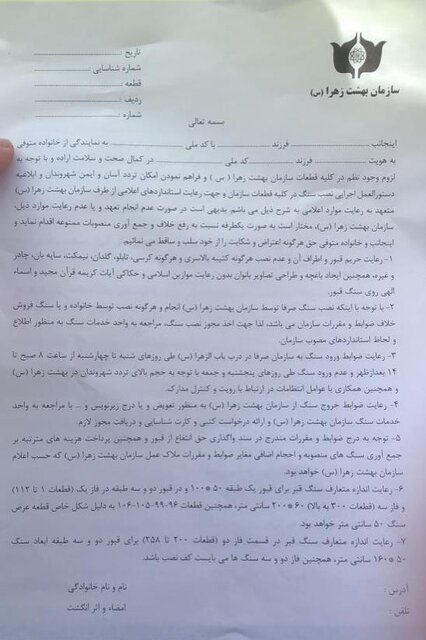 تاریخ :
شماره شناسایی :
قطعه :
ردیف :
شماره :
سازمان بهشت زهرا (س)
بسمه تعالی
اینجانب فرزند با کد ملی به نمایندگی از خانواده متوفی
به هویت فرزند کد ملی در کمال صحت و سلامت اراده و با توجه به
لزوم وجود نظم در کلیه قطعات سازمان بهشت زهرا ( س ) و فراهم نمودن امکان تردد آسان و ایمن شهروندان و ابلاغیه
دستورالعمل اجرایی نصب سنگ در کلیه قطعات سازمان و جهت رعایت استانداردهای اعلامی از طرف سازمان بهشت زهرا (س)
متعهد به رعایت موارد اعلامی به شرح ذیل می باشم. بدیهی است در صورت عدم انجام تعهد و یا عدم رعایت موارد ذیل،
سازمان بهشت زهرا (س)، مختار است به صورت یکطرفه نسبت به رفع خلاف و جمع آوری منصوبات ممنوعه اقدام نماید و
اینجانب و خانواده متوفی حق هرگونه اعتراض و شکایت را از خود سلب و ساقط می نمائیم.
۱- رعایت حریم قبور و اطراف آن و عدم نصب هرگونه کتیبه بالاسری و هرگونه کرسی، تابلو، گلدان، نیمکت، سایه بان، چادر
و غیره، همچنین ایجاد باغچه و طراحی تصاویر بانوان بدون رعایت موازین اسلامی و حکاکی آیات کریمه قرآن مجید و اسماء
الهی روی سنگ قبور.
۲- با توجه با اینکه نصب سنگ صرفا توسط سازمان بهشت زهرا (س) انجام و هرگونه نصب توسط خانواده و یا سنگ فروش
خلاف ضوابط و مقررات سازمان می باشد، لذا جهت اخذ مجوز نصب سنگ، مراجعه به واحد خدمات سنگ به منظور اطلاع
و لحاظ استانداردهای مصوب سازمان.
۳- رعایت ضوابط ورود سنگ به سازمان صرفا در درب باب الزهرا (س) طی روزهای شنبه تا چهارشنبه از ساعت ۸ صبح تا
۱۴ بعدازظهر و عدم ورود سنگ طی روزهای پنجشنبه و جمعه با توجه به حجم بالای تردد شهروندان در بهشت زهرا (س)
و همچنین همکاری با عوامل انتظامات در ارتباط با رویت و کنترل مدارک.
۴- رعایت ضوابط خروج سنگ از سازمان بهشت زهرا (س) به منظور تعویض و یا درج زیرنویس و .. با مراجعه به واحد
خدمات سنگ سازمان بهشت زهرا (س) و ارائه درخواست کتبی و کارت شناسایی و دریافت مجوز لازم.
۵- توجه به درج ضوابط و مقررات مندرج در سند واگذاری حق انتفاع از قبور و همچنین پرداخت هزینه های مترتبه بر
جمع آوری سنگ های منصوبه و احجام اضافی مغایر ضوابط و مقررات ملاک عمل سازمان بهشت زهرا (س) که حسب اعلام
سازمان بهشت زهرا (س) خواهد بود.
۶- رعایت اندازه متعارف سنگ قبر برای قبور یک طبقه ۵۰*۱۰۰ و در قبور دو و سه طبقه در فاز یک (قطعات ۱ تا ۱۱۲)
و فاز سه (قطعات ۳۰۰ به بالا) ۶۰*۲۰۰ سانتی متر، همچنین قطعات ۹۶-۹۹-۱۰۵-۱۰۶ به دلیل شکل خاص قطعه عرض
سنگ ۵۰ سانتی متر خواهد بود.
۷- رعایت اندازه متعارف سنگ قبر در قسمت فاز دو (قطعات ۲۰۰ تا ۲۵۸) برای قبور دو و سه طبقه ابعاد سنگ
۵۰*۱۶۰ سانتی متر، همچنین فاز دو و سه سنگ ها می بایست کف نصب باشد.
آدرس :
نام و نام خانوادگی
تلفن :
امضاء و اثر انگشت